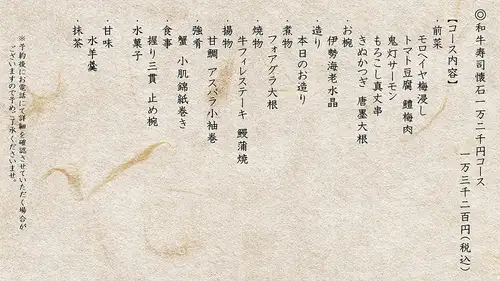 ◎和牛寿司懐石 一万二千円コース
一万三千二百円(税込)
【コース内容】
・前菜
モロヘイヤ梅浸し
トマト豆腐 鱧梅肉
鬼灯サーモン
もろこし真丈串
きぬかつぎ 唐墨大根
・お椀
伊勢海老水晶
・造り
本日のお造り
・煮物
フォアグラ大根
・焼物
牛フィレステーキ 鰻蒲焼
・揚物
甘鯛 アスパラ小袖巻
・強肴
蟹 小肌錦紙巻き
・食事
握り三貫 止め椀
・水菓子
・甘味
水羊羹
・抹茶
※予約後にお電話にて詳細を確認させていただく場合が
ございますので予めご了承くださいませ。